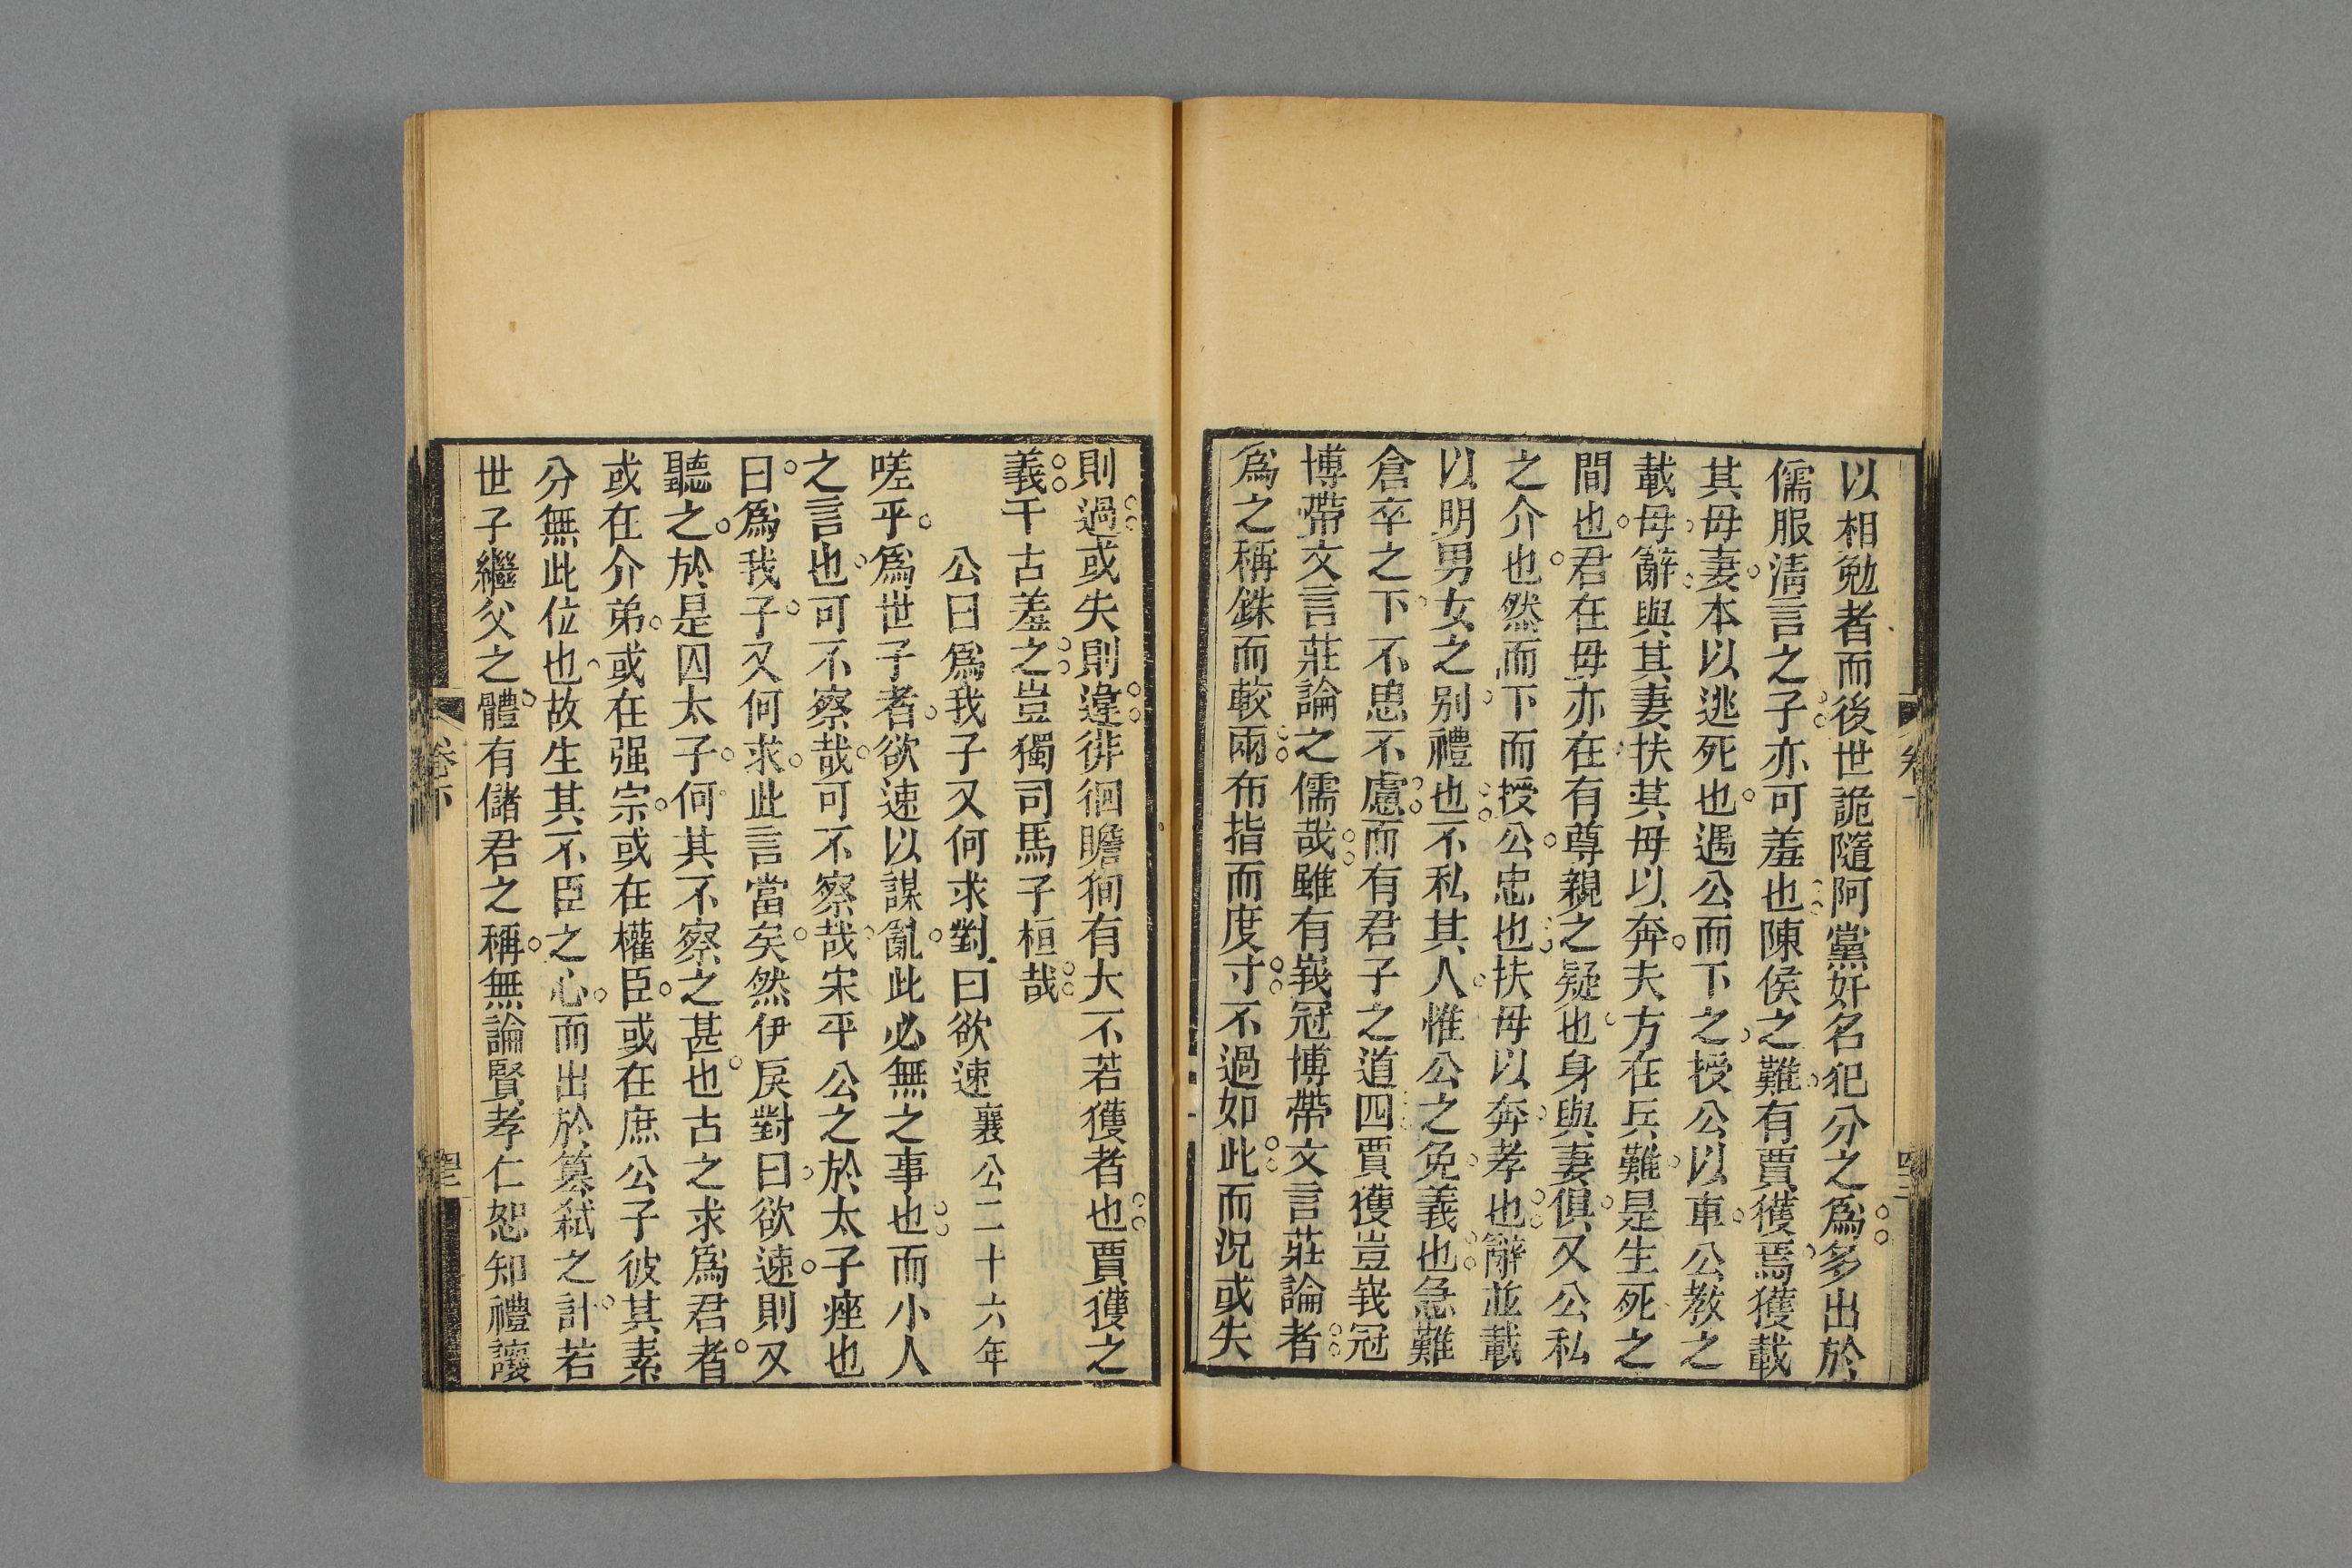 以相勉者而後世詭隨阿黨奸名犯分之爲多出於
儒服淸言之子亦可羞也陳侯之難有賈獲焉獲載
其母妻本以逃死也遇公而下之授公以車公教之
載母辭與其妻扶其母以奔夫方在兵難是生死之
間也君在母亦在有尊親之疑也身與妻俱又公私
之介也然而下而授公忠也扶母以奔孝也辭並載
以明男女之别禮也不私其人惟公之免義也急難
倉卒之下不患不慮而有君子之道四賈獲豈峩冠
博帶文言莊論之儒哉雖有峩冠博帶文言莊論者
爲之稱銖而較兩布指而度寸不過如此而況或失
則過或失則違徘徊瞻徇有大不若獲者也賈獲之
義千古羞之豈獨司馬子桓哉
公曰爲我子又何求對曰欲速 襄公二十六年
嗟乎爲世子者欲速以謀亂此必無之事也而小人
之言也可不察哉可不察哉宋平公之於太子痤也
曰爲我子又何求此言當矣然伊戾對曰欲速則又
聽之於是囚太子何其不察之甚也古之求爲君者
或在介弟或在强宗或在權臣或在庶公子彼其素
分無此位也故生其不臣之心而出於簒弑之計若
世子繼父之體有儲君之稱無論賢孝仁恕知禮讓
卷下